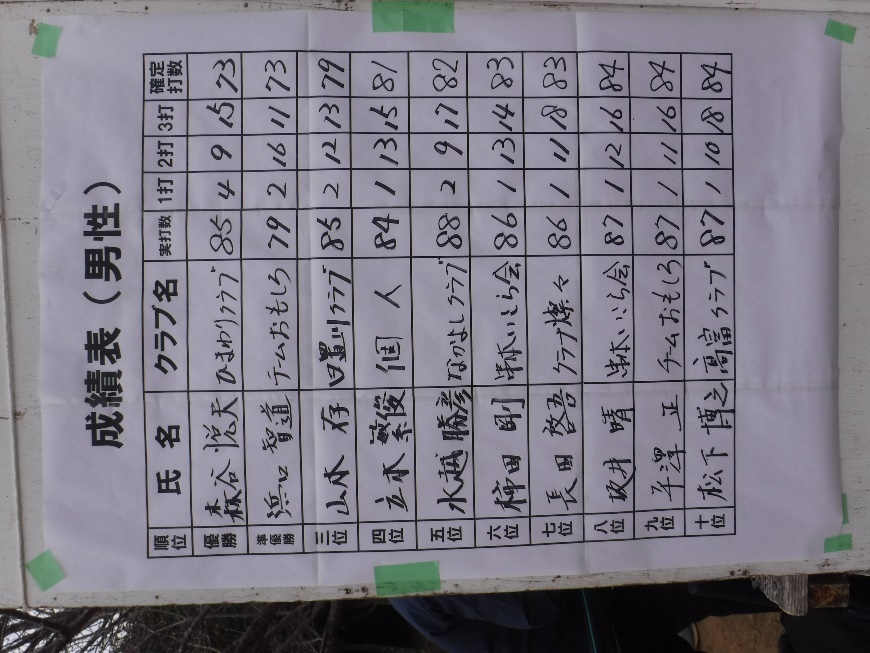 成績表(男性)
順位 氏名 クラブ名 実打数 1打 2打 3打 確定打数
優勝 森谷悦天 ひまわりクラブ 85 4 9 15 73
準優勝 浜口智道 チームおもしろ 79 2 16 11 73
三位 山本存 日置川クラブ 85 2 12 13 79
四位 立木繁俊 個人 84 1 13 15 81
五位 水越勝彦 なかよしクラブ 88 2 9 17 82
六位 柿田剛 串本いそら会 86 1 13 14 83
七位 長田啓吾 クラブ燦々 86 1 11 18 83
八位 坂井晴 串本いそら会 87 1 12 16 84
九位 平澤正 チームおもしろ 87 1 11 16 84
十位 松下博之 高富クラブ 87 1 10 18 84